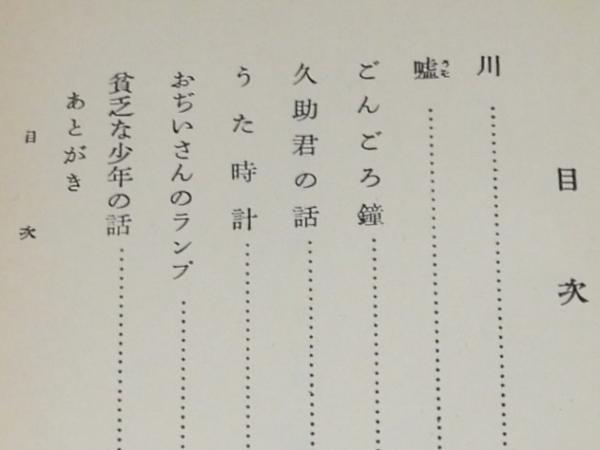 目次
川
嘘うそ
ごんごろ鐘
久助君の話
うた時計
おぢいさんのランプ
貧乏な少年の話
あとがき
目次